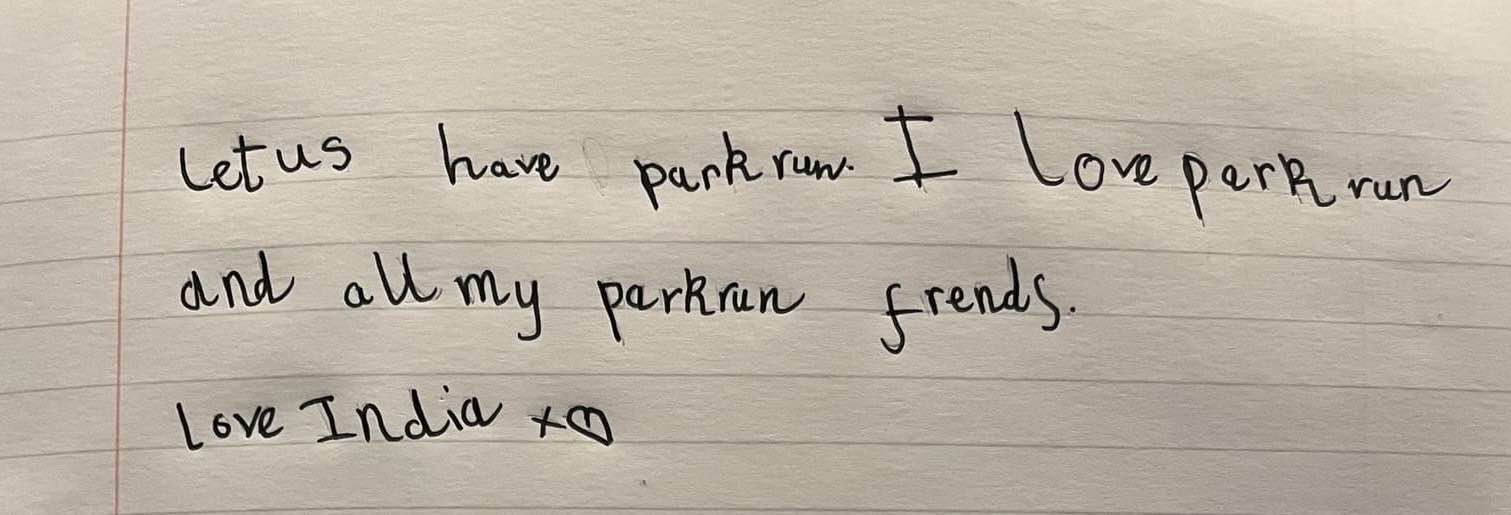 Let us have park run. I Love park run
and all my parkrun frends.
Love India x♡